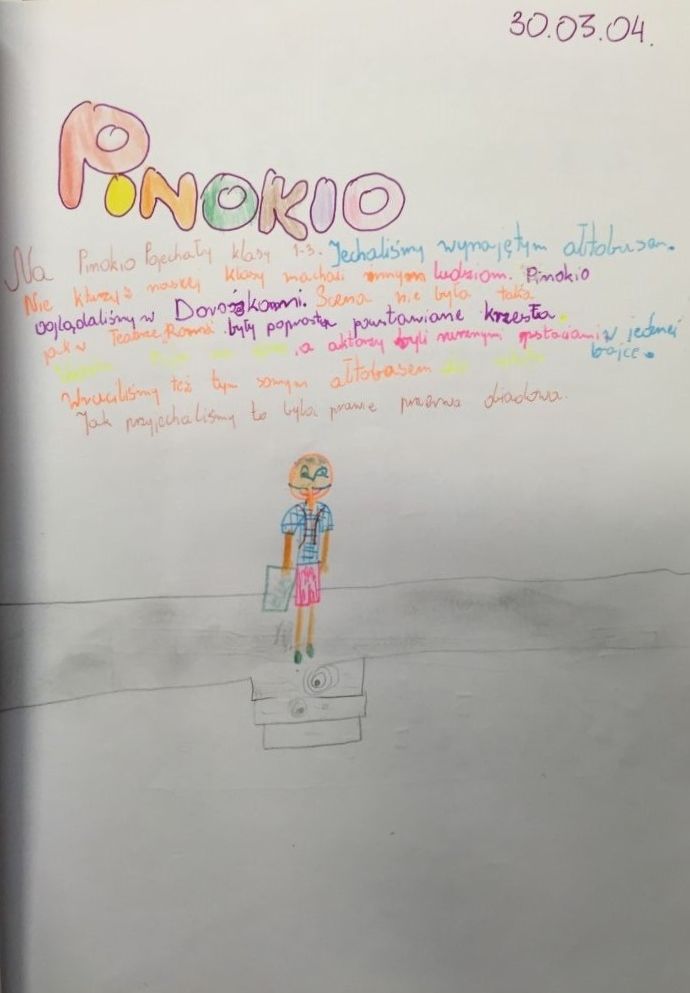 30.03.04.
PINOKIO
Na Pinokio Pojechały klasy 1-3. Jechaliśmy wynajętym ałtobusem.
Nie którzyś naszej klasy machali innym ludziom. Pinokio
oglądaliśmy w Dorożkarni. Scena nie była taka
jak w Teatrze Roma były poprostu powstawiane krzesła.
, a aktorzy byli różnymi postaciami w jednej
bajce.
Wruciliśmy też tym samym ałtobasem
Jak przyjechaliśmy to była prawie przerwa obiadowa.